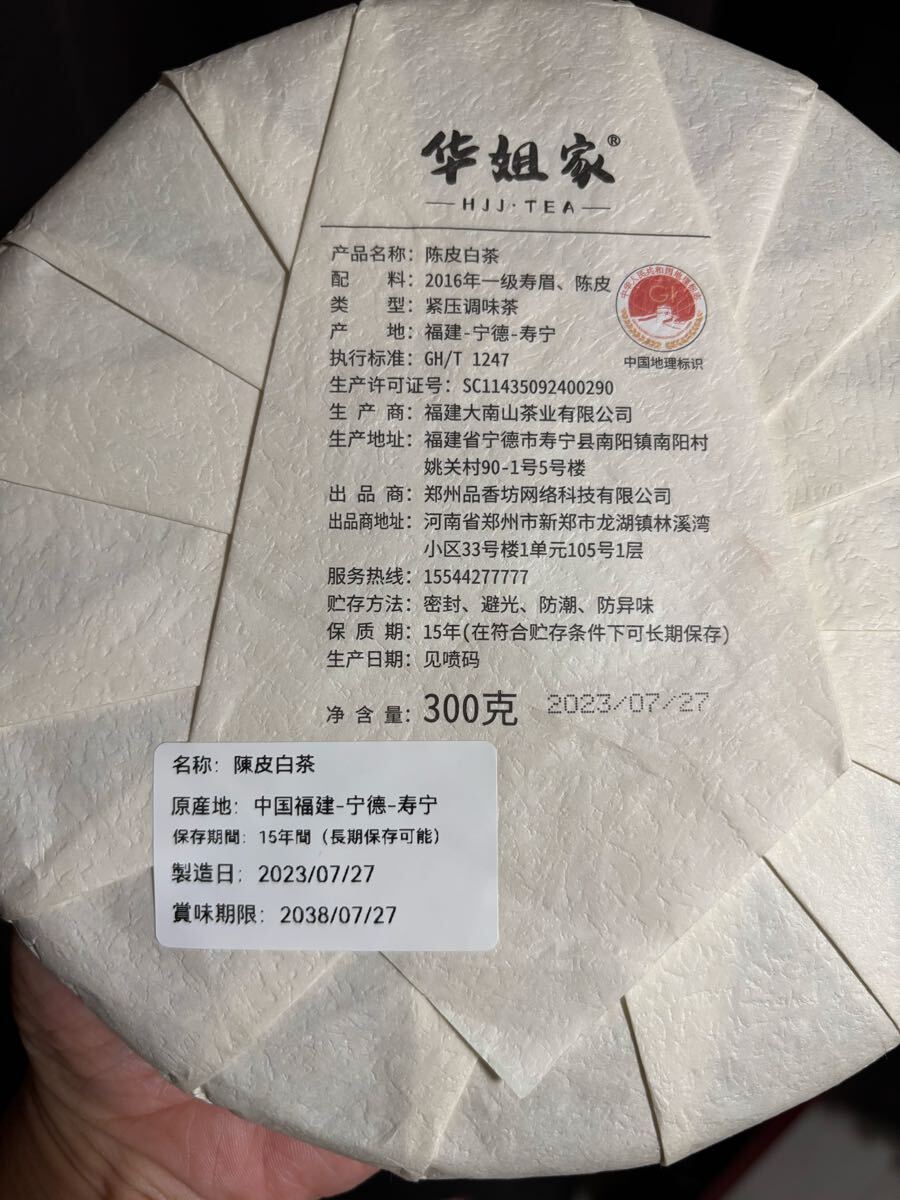 华姐家®
HJJ·TEA
产品名称：陈皮白茶
配 料：2016年一级寿眉、陈皮
类 型：紧压调味茶
产 地：福建-宁德-寿宁
执行标准：GH/T 1247
生产许可证号：SC11435092400290
生 产 商：福建大南山茶业有限公司
生产地址：福建省宁德市寿宁县南阳镇南阳村
姚关村90-1号5号楼
出 品 商：郑州品香坊网络科技有限公司
出品商地址：河南省郑州市新郑市龙湖镇林溪湾
小区33号楼1单元105号1层
服务热线：15544277777
贮存方法：密封、避光、防潮、防异味
保 质 期：15年(在符合贮存条件下可长期保存)
生产日期：见喷码
净 含 量：300克 2023/07/27
中华人民共和国地理标志
GI
中国地理标识
名称：陳皮白茶
原産地：中国福建-宁德-寿宁
保存期間：15年間（長期保存可能）
製造日：2023/07/27
賞味期限：2038/07/27